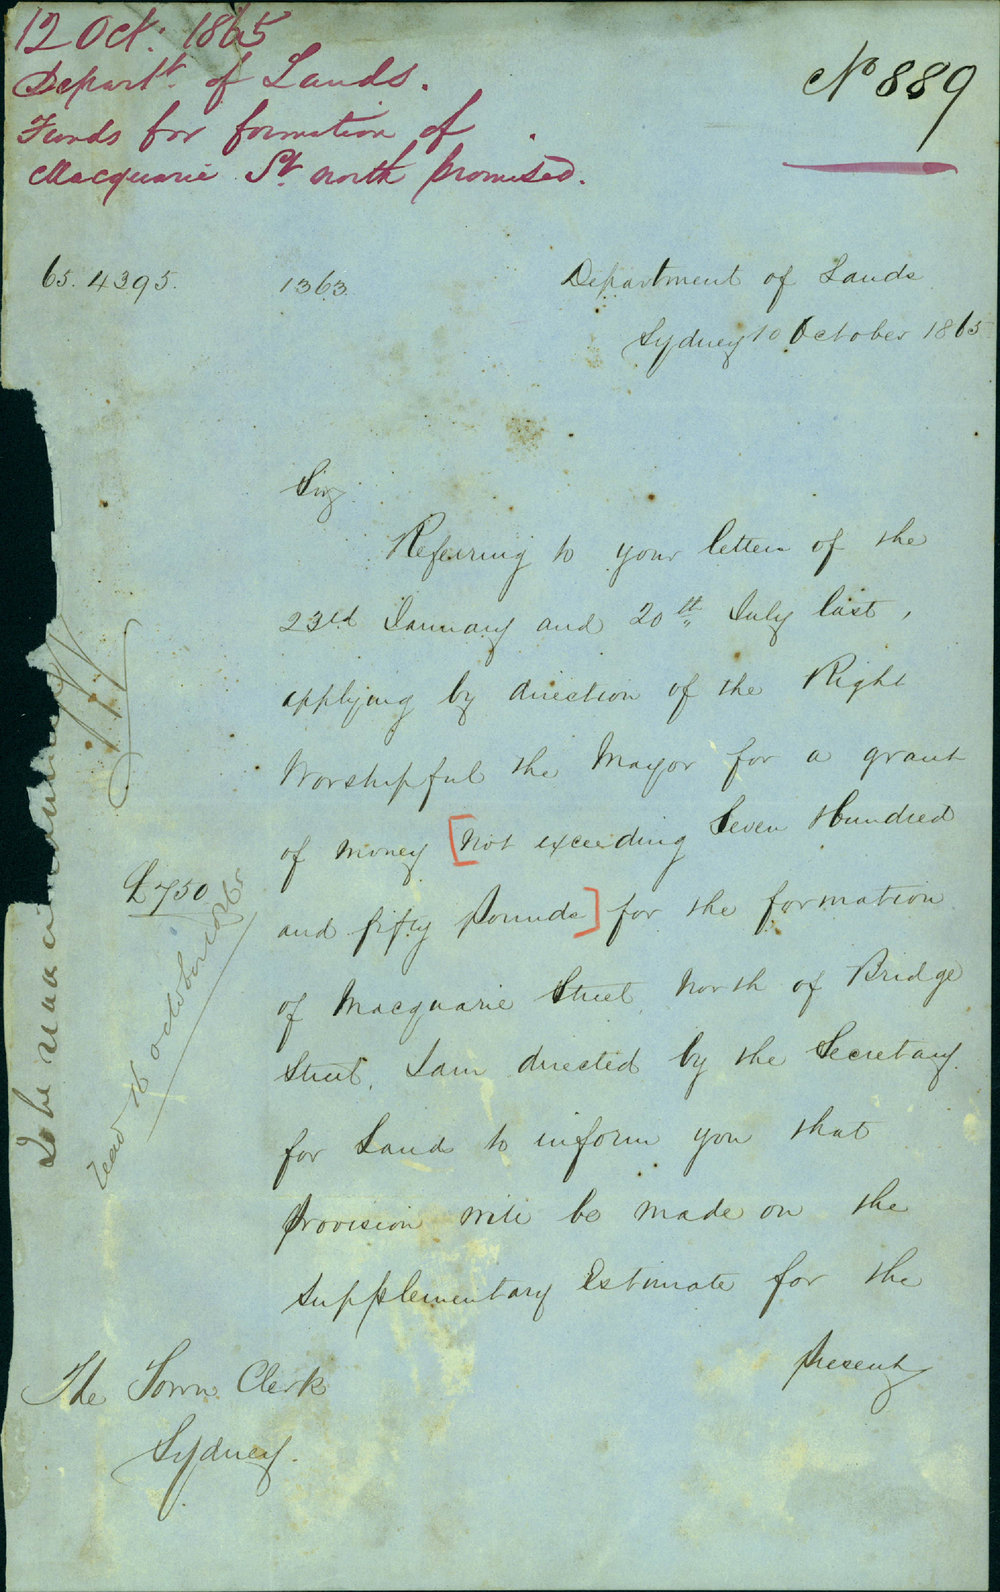 12 Oct: 1865
Departt. of Lands.
Funds for formation of
Macquarie St. north promised.
No 889
65.4395.
1363
Department of Lands
Sydney 10 October 1865
Sir,
Referring to your letters of the
23rd January and 20th July last,
applying by direction of the Right
Worshipful the Mayor for a grant
of money [not exceeding Seven Hundred
and fifty pounds] for the formation
of Macquarie Street North of Bridge
Street, I am directed by the Secretary
for Lands to inform you that
provision will be made on the
Supplementary Estimate for the
present
The Town Clerk
Sydney.
£750
read 16 October 1865